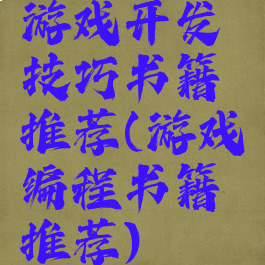 游戏开发
技巧书籍
推荐(游戏
编程书籍
推荐)